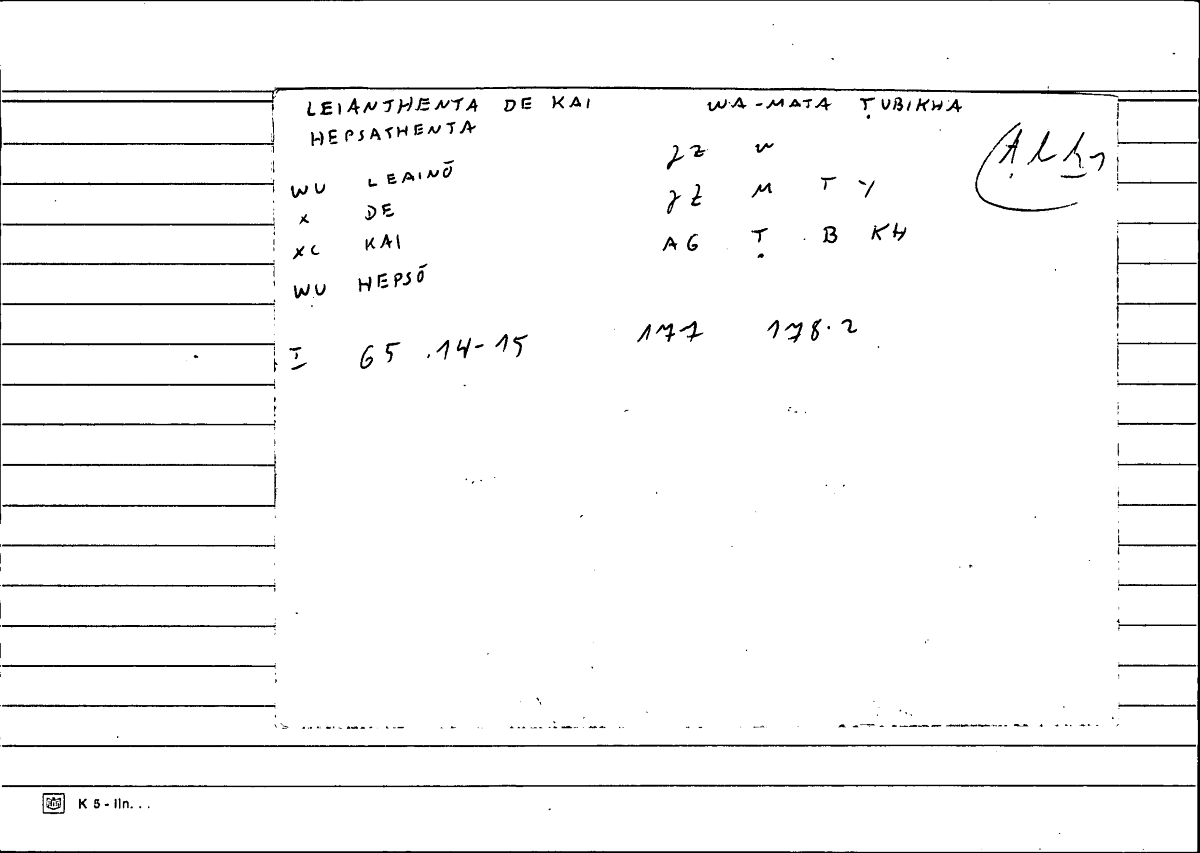 LEIANTHENTA DE KAI WA-MATA ṬUBIKHA
HEPSATHENTA
JZ W
WU LEAINŌ
JZ M T Y
X DE
XC KAI AG Ṭ B KH
WU HEPSŌ
I 65 .14-15 177 178.2
K 5 - IIn. . .